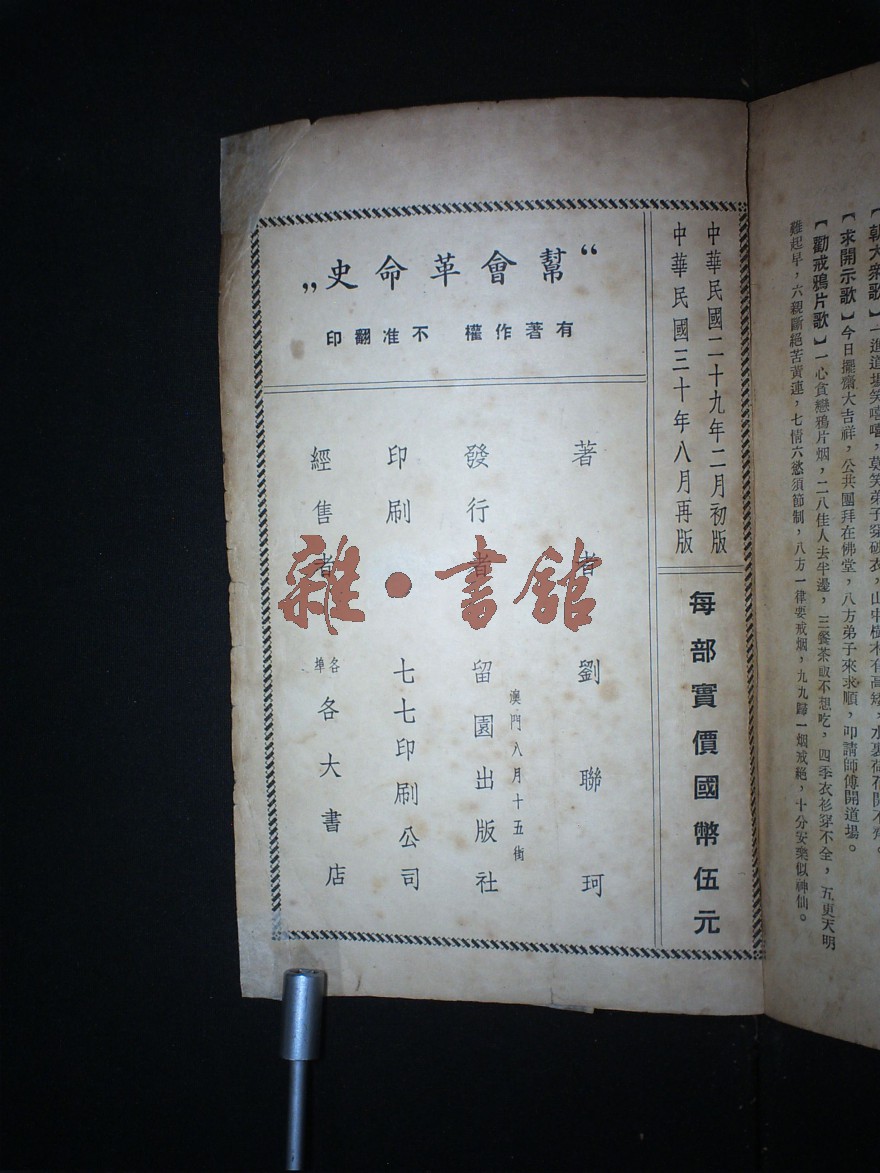 【朝大衆歌】一進道場笑嘻嘻，莫笑弟子穿破衣，山中樹木有高矮，水裏荷花開不齊。
【求開示歌】今日擺齋大吉祥，公共團拜在佛堂，八方弟子來求順，叩請師傅開道場。
【勸戒鴉片歌】一心貪戀鴉片烟，二八佳人去半邊，三餐茶飯不想吃，四季衣衫穿不全，五更天明
難起早，六親斷絕苦黃連，七情六慾須節制，八方一律要戒烟，九九歸一烟戒絕，十分安樂似神仙。
中華民國二十九年二月初版
中華民國三十年八月再版
每部實價國幣伍元
“幫會革命史”
有著作權 不准翻印
著者 劉聯珂
澳門八月十五街
發行者 留園出版社
印刷 七七印刷公司
經售者 各埠各大書店
雜·書館